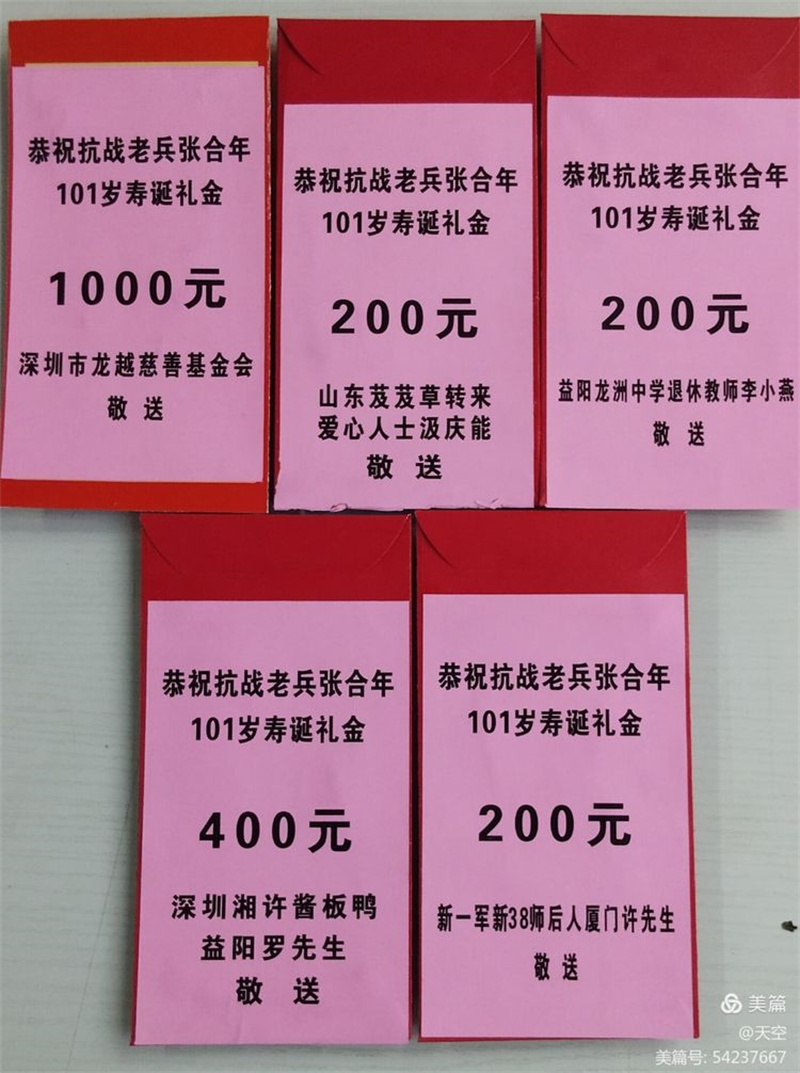 恭祝抗战老兵张合年
101岁寿诞礼金
1000元
深圳市龙越慈善基金会
敬 送
恭祝抗战老兵张合年
101岁寿诞礼金
200元
山东芨芨草转来
爱心人士汲庆能
敬 送
恭祝抗战老兵张合年
101岁寿诞礼金
200元
益阳龙洲中学退休教师李小燕
敬 送
恭祝抗战老兵张合年
101岁寿诞礼金
400元
深圳湘许酱板鸭
益阳罗先生
敬 送
恭祝抗战老兵张合年
101岁寿诞礼金
200元
新一军新38师后人厦门许先生
敬 送
美篇
@天空
美篇号: 54237667